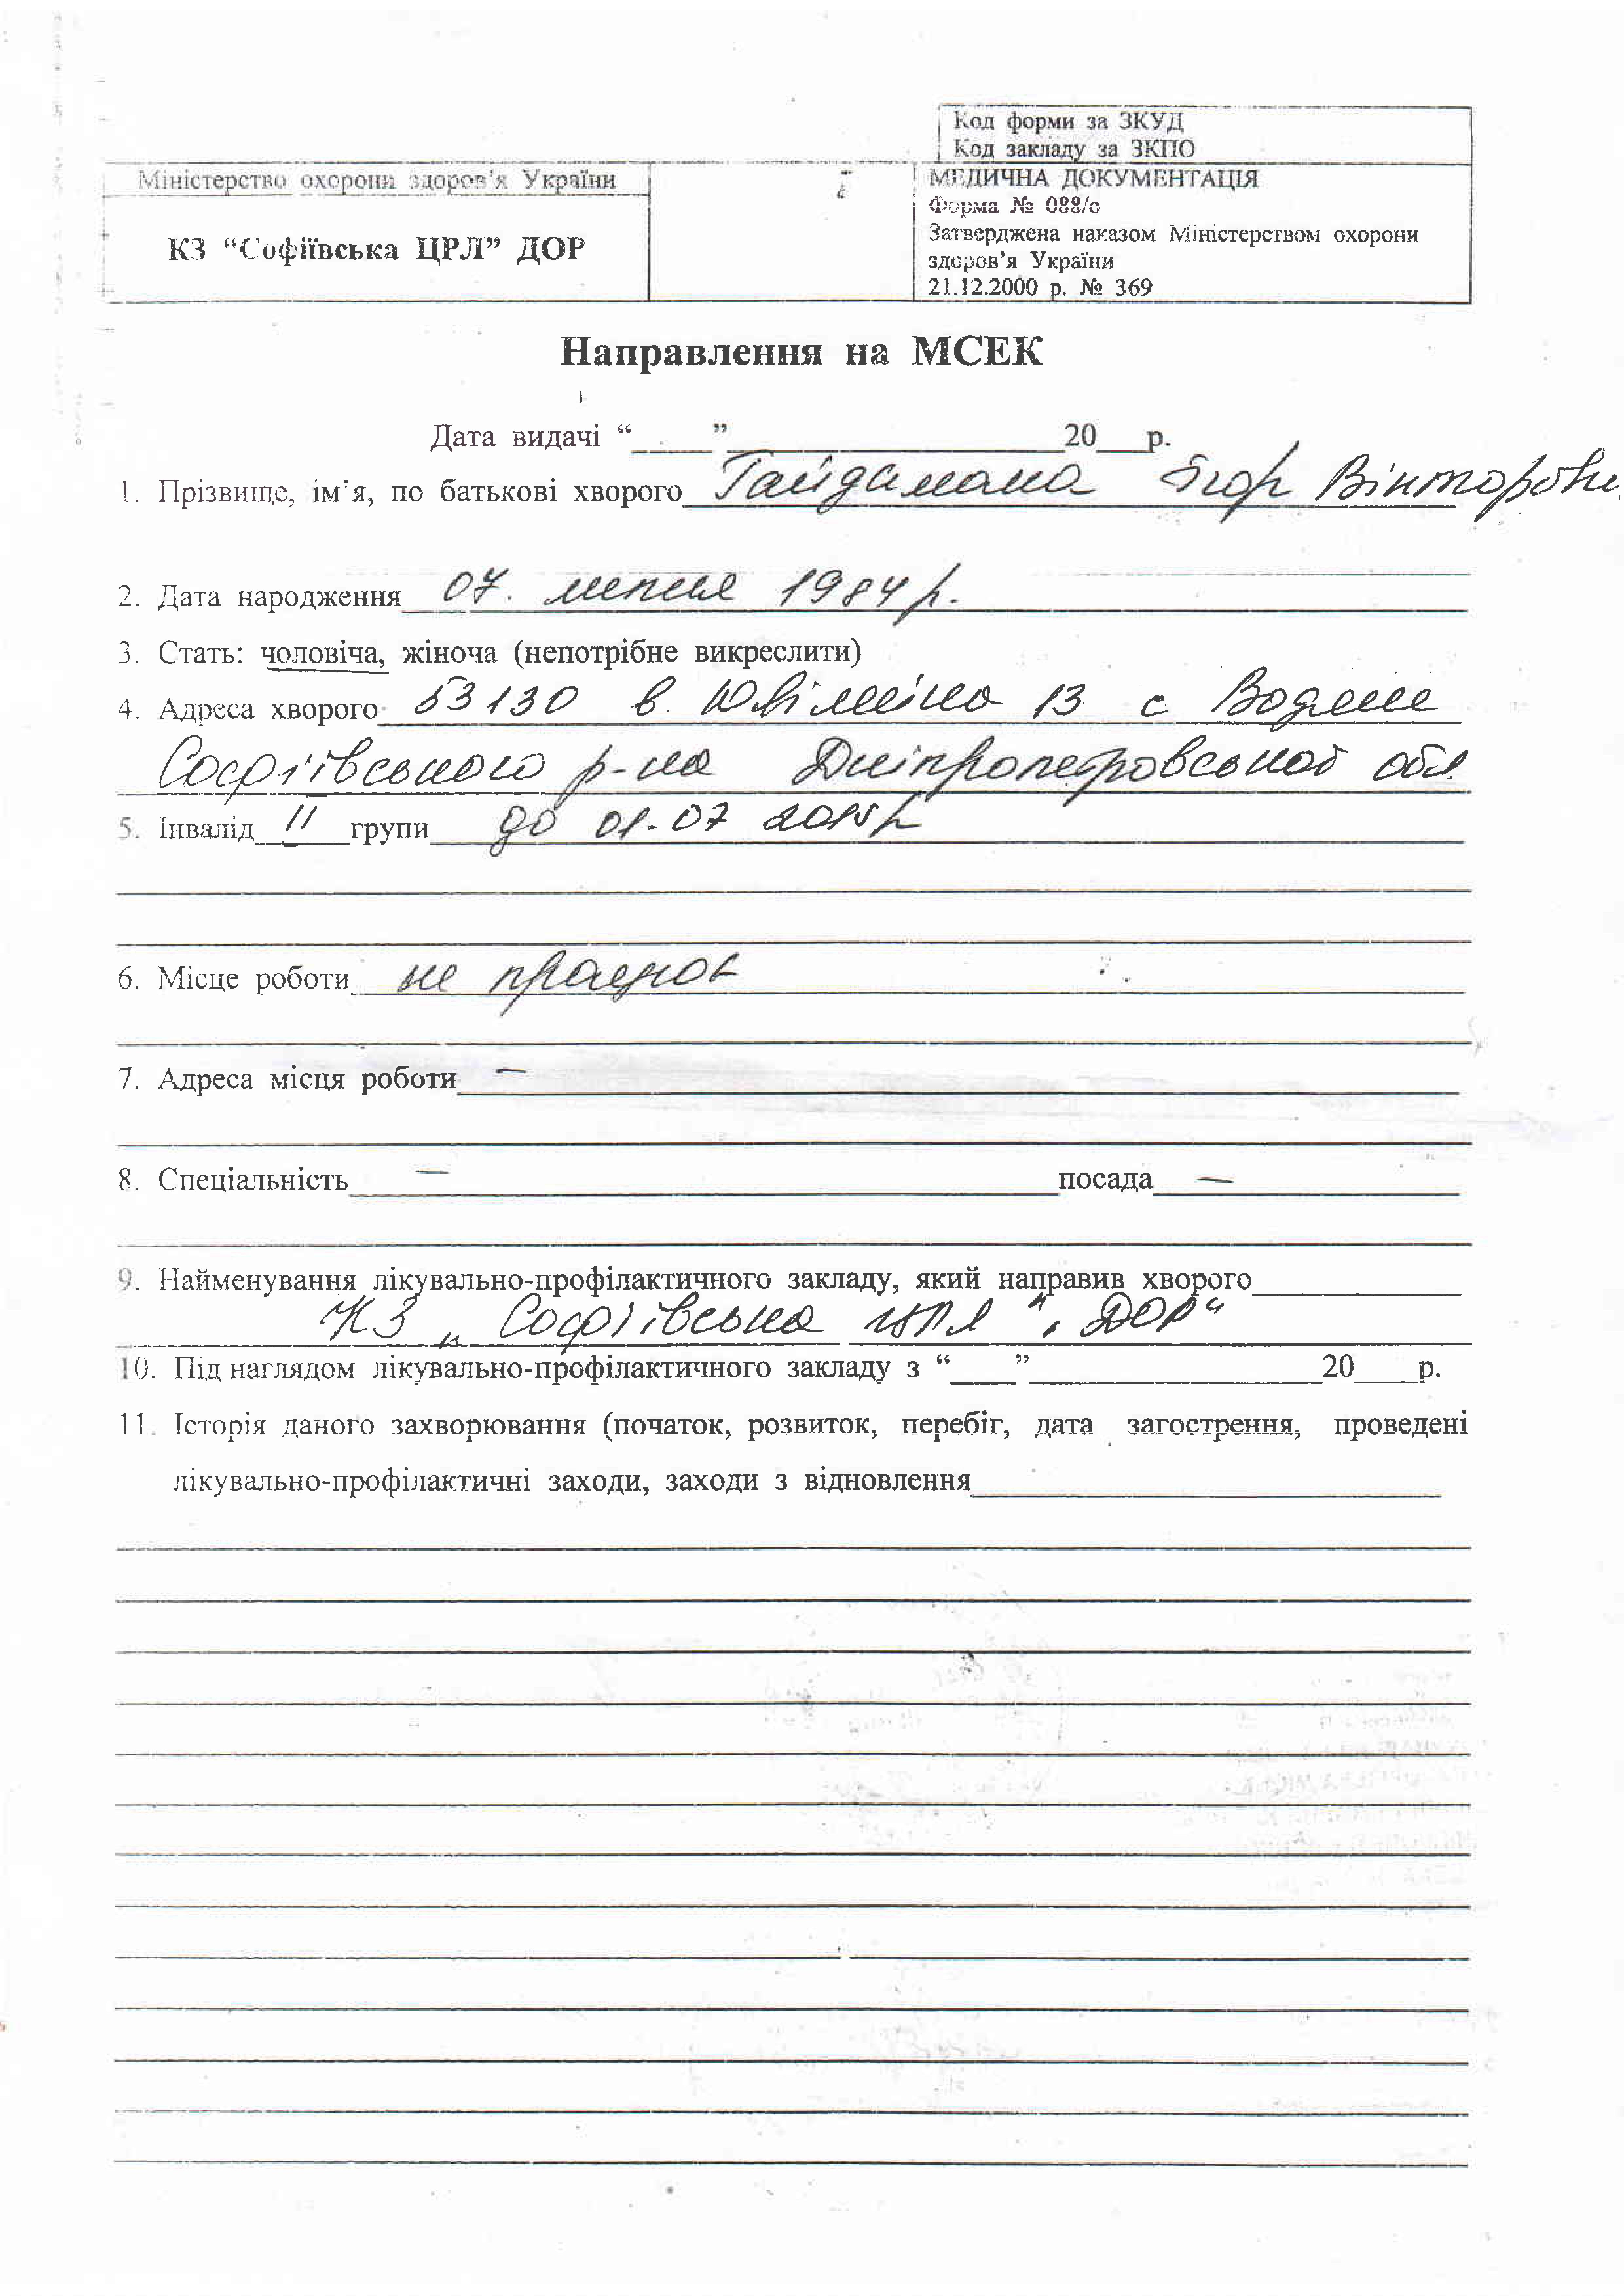 Код форми за ЗКУД
Код закладу за ЗКПО
Міністерство охорони здоров'я України
КЗ “Софіївська ЦРЛ” ДОР
МЕДИЧНА ДОКУМЕНТАЦІЯ
Форма № 088/о
Затверджена наказом Міністерством охорони
здоров’я України
21.12.2000 р. № 369
Направлення на МСЕК
Дата видачі “____”____________20__р.
1. Прізвище, ім'я, по батькові хворого Гайдамака Ігор Вікторови
2. Дата народження 07. липня 1984 р.
3. Стать: чоловіча, жіноча (непотрібне викреслити)
4. Адреса хворого 53130 в. Ювілейна 13 с Водяне
Софіївського р-на Дніпропетровської обл.
5. Інвалід II групи до 01.07 2015 р
6. Місце роботи не працює
7. Адреса місця роботи —
8. Спеціальність — посада —
9. Найменування лікувально-профілактичного закладу, який направив хворого
КЗ „Софіївська ЦРЛ" „ДОР"
10. Під наглядом лікувально-профілактичного закладу з “____”____________20___р.
11. Історія даного захворювання (початок, розвиток, перебіг, дата загострення, проведені
лікувально-профілактичні заходи, заходи з відновлення